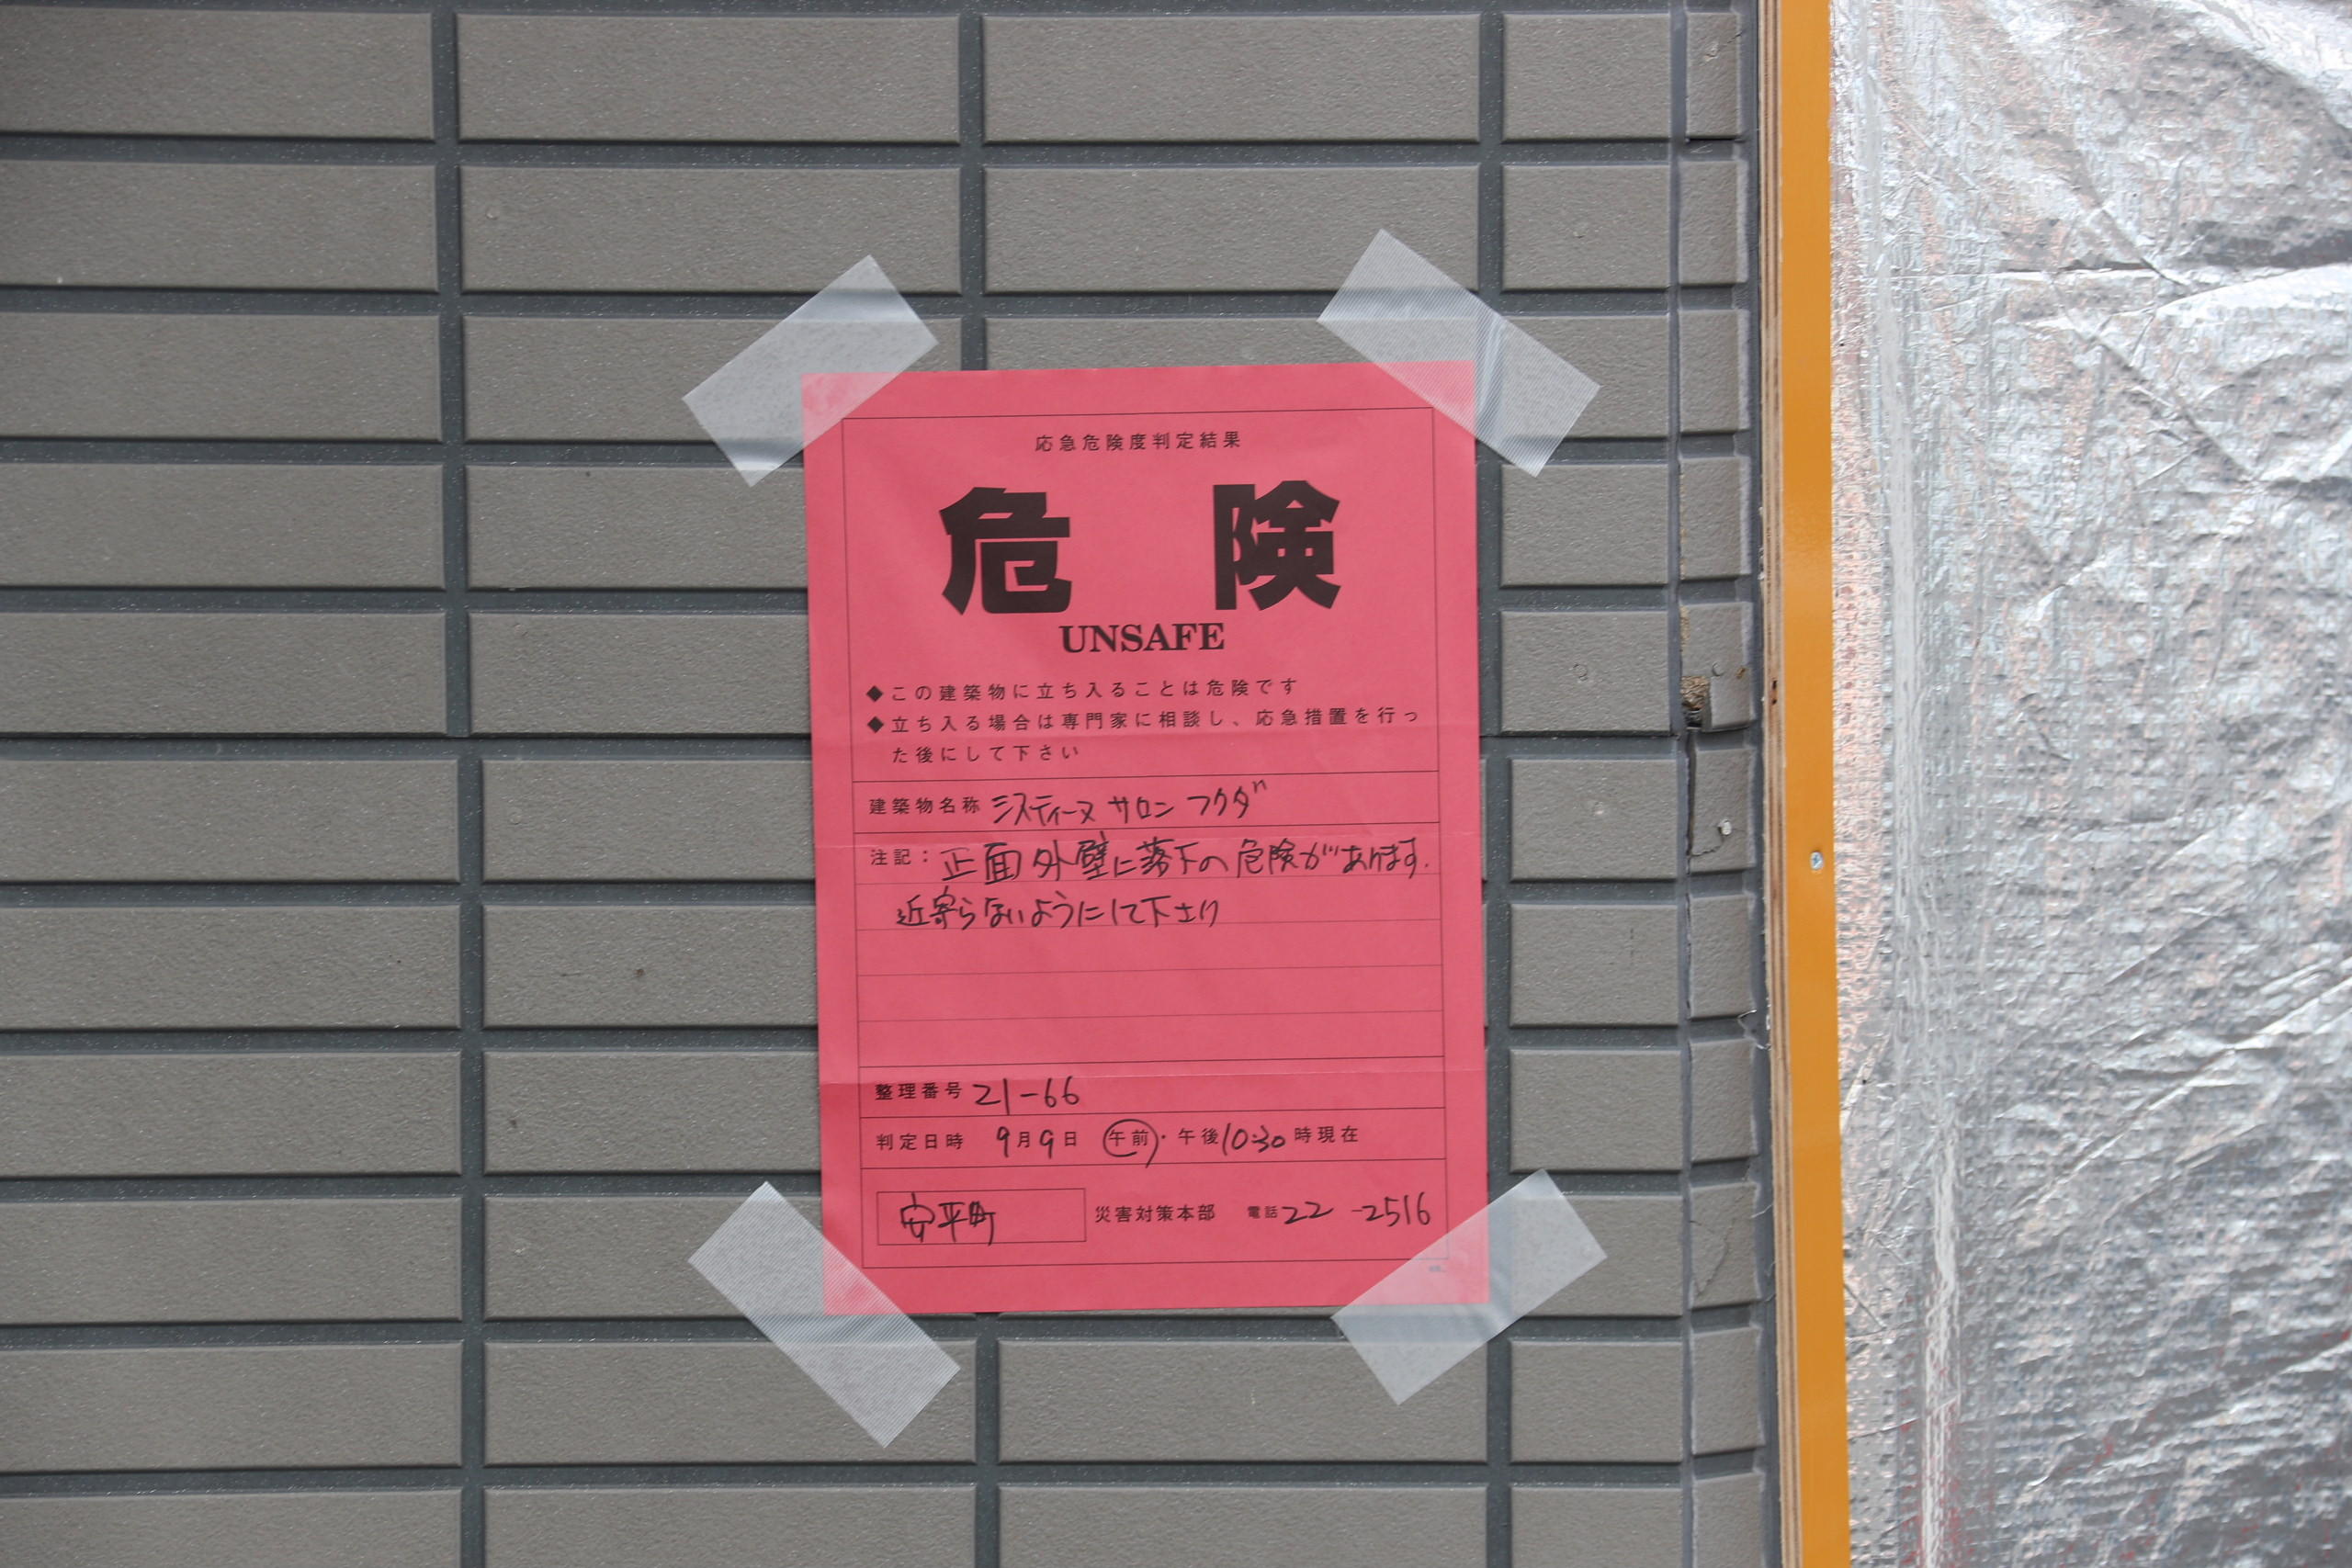 応急危険度判定結果
危険
UNSAFE
◆この建築物に立ち入ることは危険です
◆立ち入る場合は専門家に相談し、応急措置を行っ
た後にして下さい
建築物名称 システィーヌ サロン フクダ
注記：正面外壁に落下の危険があります.
近寄らないようにして下さい
整理番号 21-66
判定日時 9月9日 午前・午後10:30時現在
安平町 災害対策本部 電話22-2516